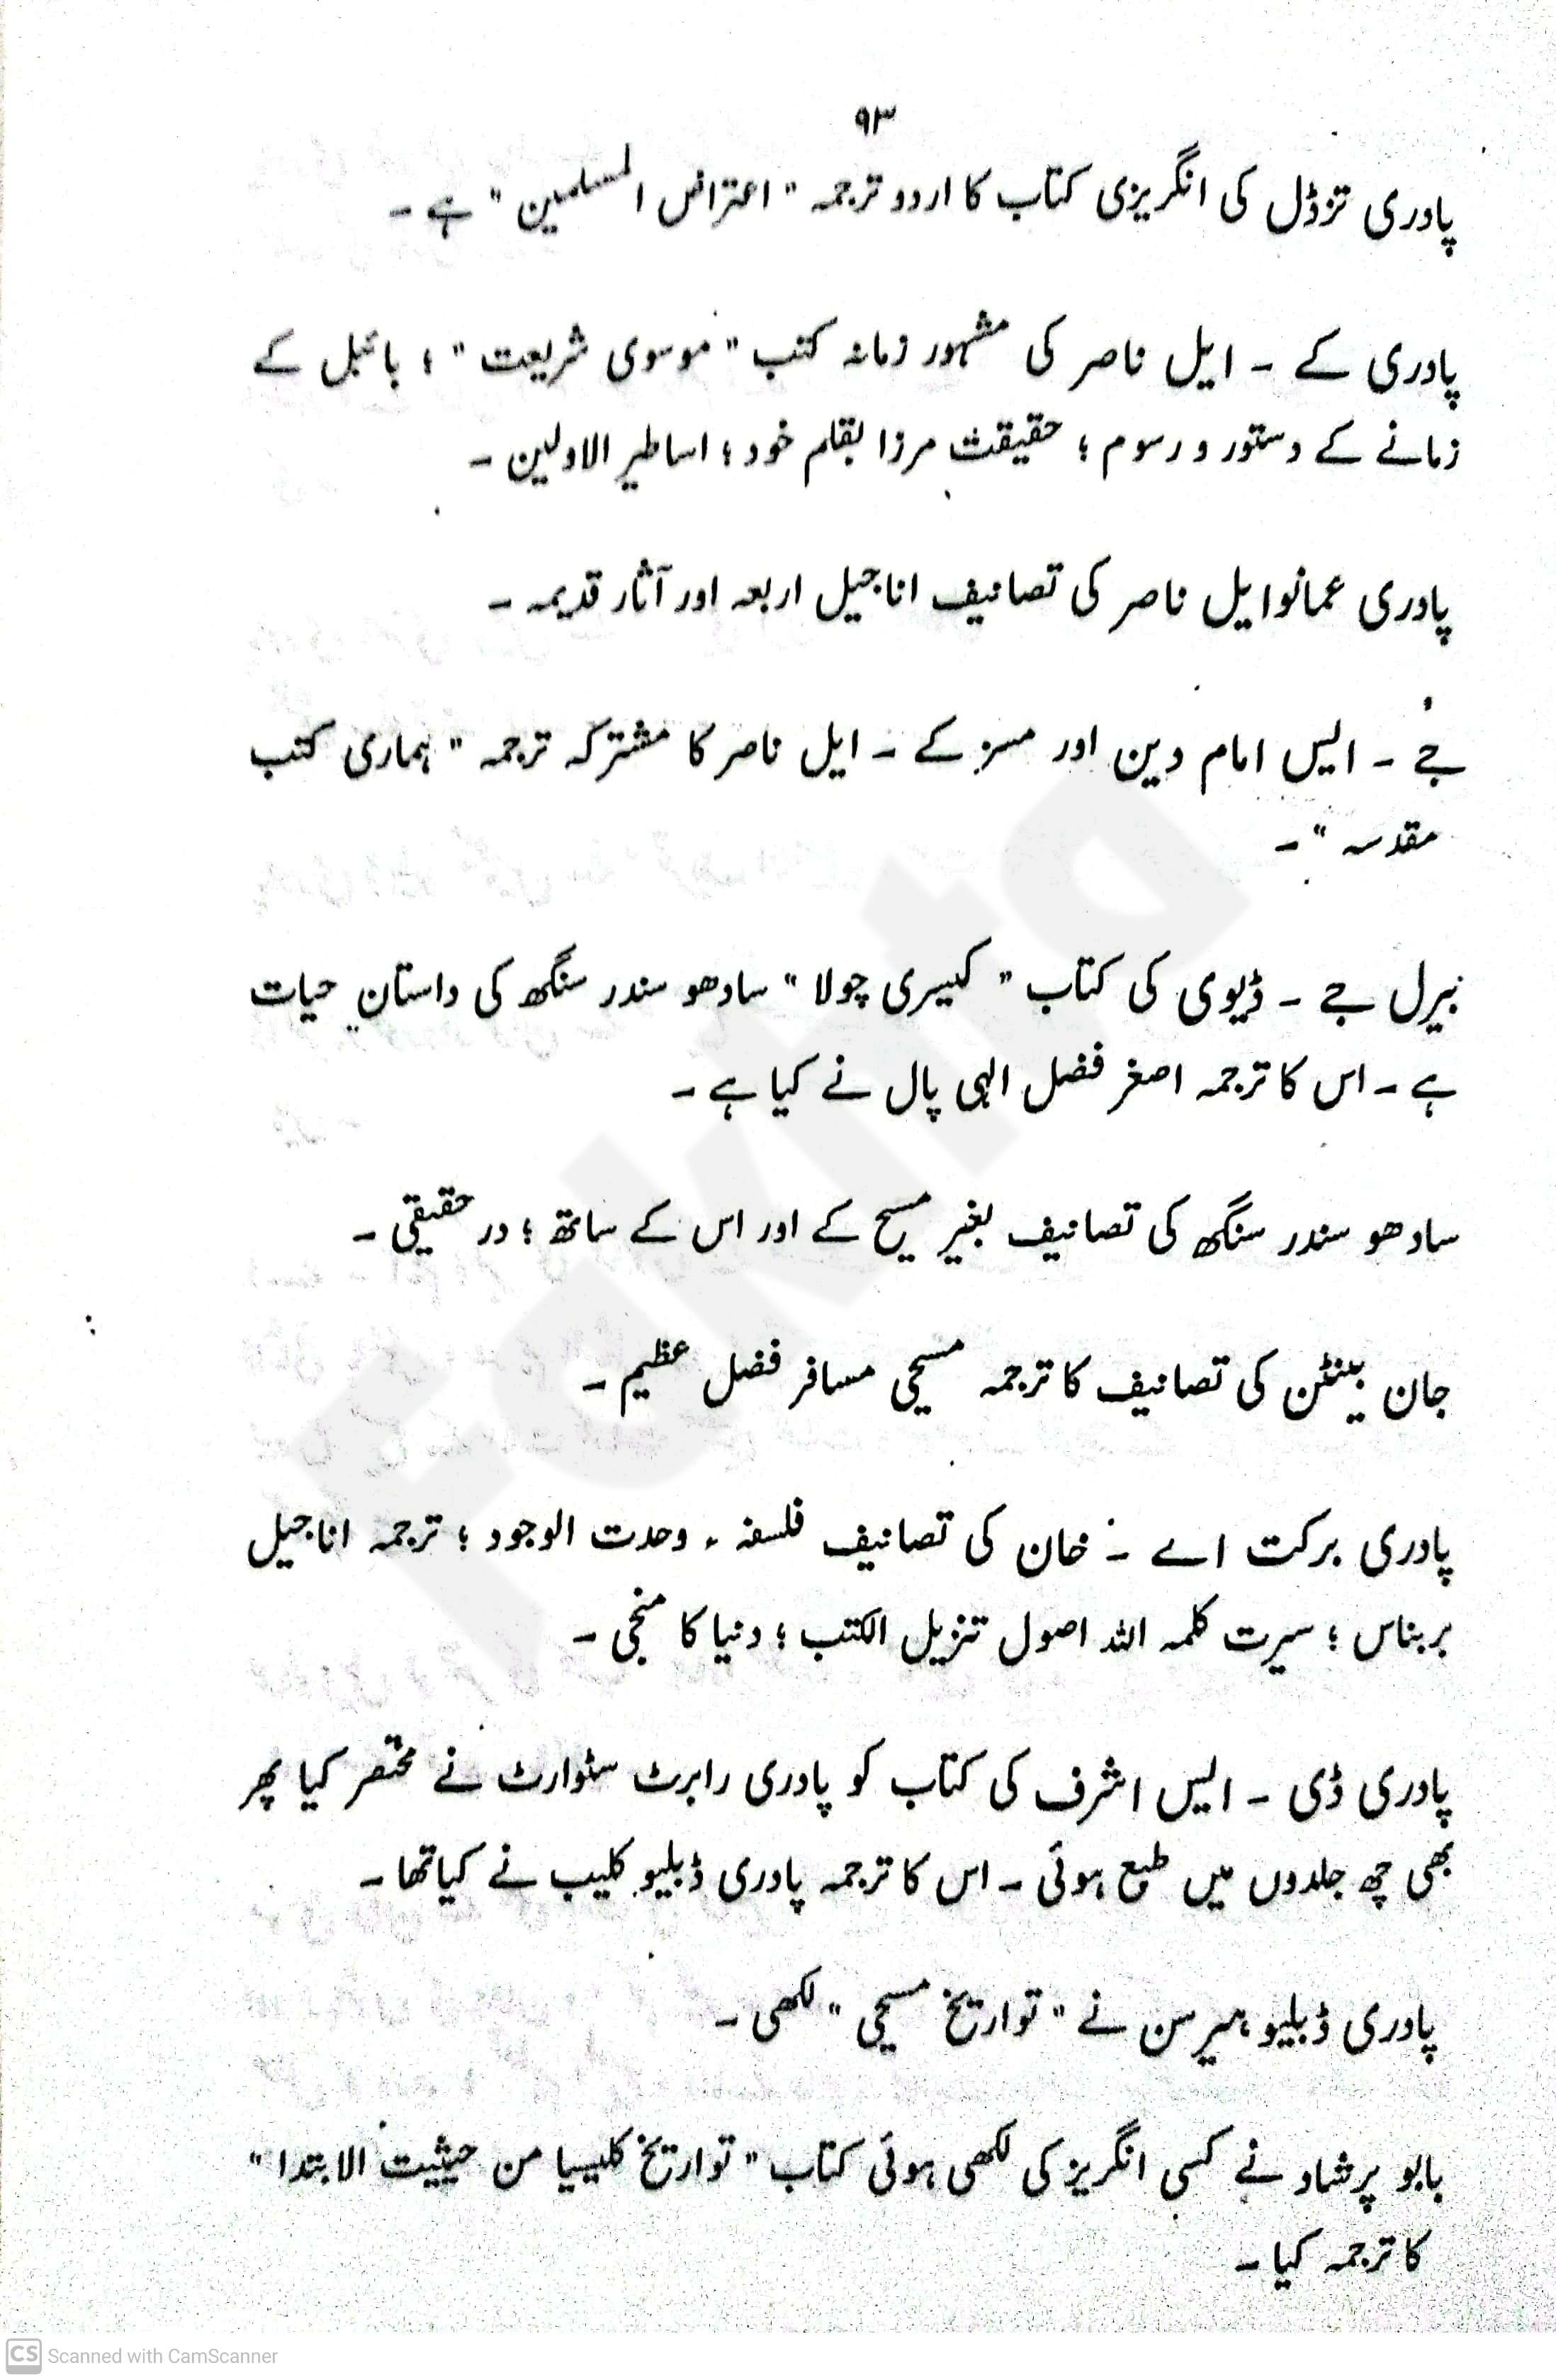 ۹۳
پادری تزڈل کی انگریزی کتاب کا اردو ترجمہ " اعتراض المسلمین " ہے ۔
پادری کے ۔ ایل ناصر کی مشہور زمانہ کتب " موسوی شریعت " ؛ بائبل کے
زمانے کے دستور و رسوم ؛ حقیقت مرزا بقلم خود ؛ اساطیر الاولین ۔
پادری عمانوایل ناصر کی تصانیف اناجیل اربعہ اور آثار قدیمہ ۔
جے ۔ ایس امام دین اور مسز کے ۔ ایل ناصر کا مشترکہ ترجمہ " ہماری کتب
مقدسہ " ۔
بیرل جے ۔ ڈیوی کی کتاب " کیسری چولا " سادھو سندر سنگھ کی داستان حیات
ہے ۔ اس کا ترجمہ اصغر فضل الہی پال نے کیا ہے ۔
سادھو سندر سنگھ کی تصانیف بغیر مسیح کے اور اس کے ساتھ ؛ در حقیقی ۔
جان بینٹن کی تصانیف کا ترجمہ مسیحی مسافر فضل عظیم ۔
پادری برکت اے ۔ خان کی تصانیف فلسفہ ء وحدت الوجود ؛ ترجمہ اناجیل
بربناس ؛ سیرت کلمہ اللہ اصول تنزیل الکتب ؛ دنیا کا منجی ۔
پادری ڈی ۔ ایس اشرف کی کتاب کو پادری رابرٹ سٹوارٹ نے مختصر کیا پھر
بھی چھ جلدوں میں طبع ہوئی ۔ اس کا ترجمہ پادری ڈبلیو کلیب نے کیا تھا ۔
پادری ڈبلیو ہیرسن نے " تواریخ مسیحی " لکھی ۔
بابو پرشاد نے کسی انگریز کی لکھی ہوئی کتاب " تواریخ کلیسیا من حیثیت الابتدا "
کا ترجمہ کیا ۔
Fakhta
CS Scanned with CamScanner